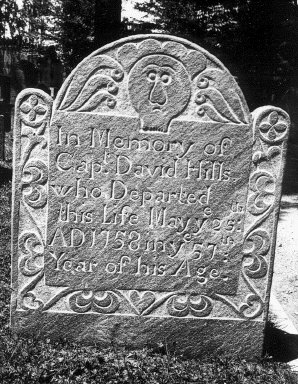 In Memory of
Capt. David Hills
who Departed
this Life May ye 25th
AD 1758 in ye 57th
Year of his Age